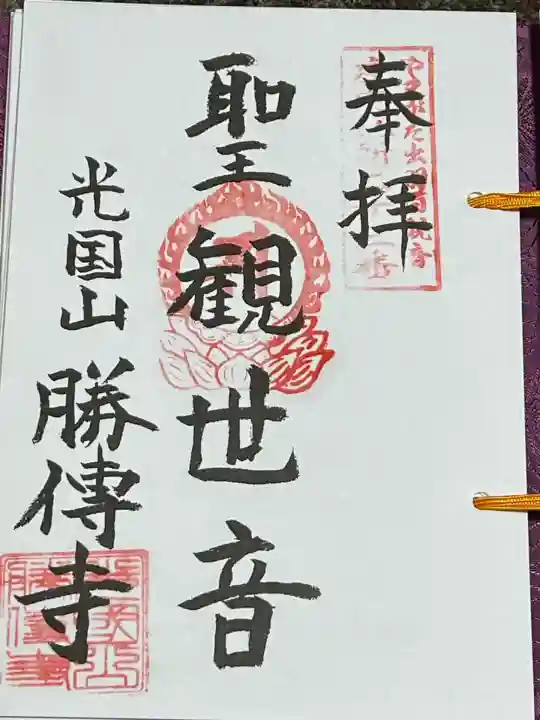 奉拝
聖観世音
光国山
勝傳寺